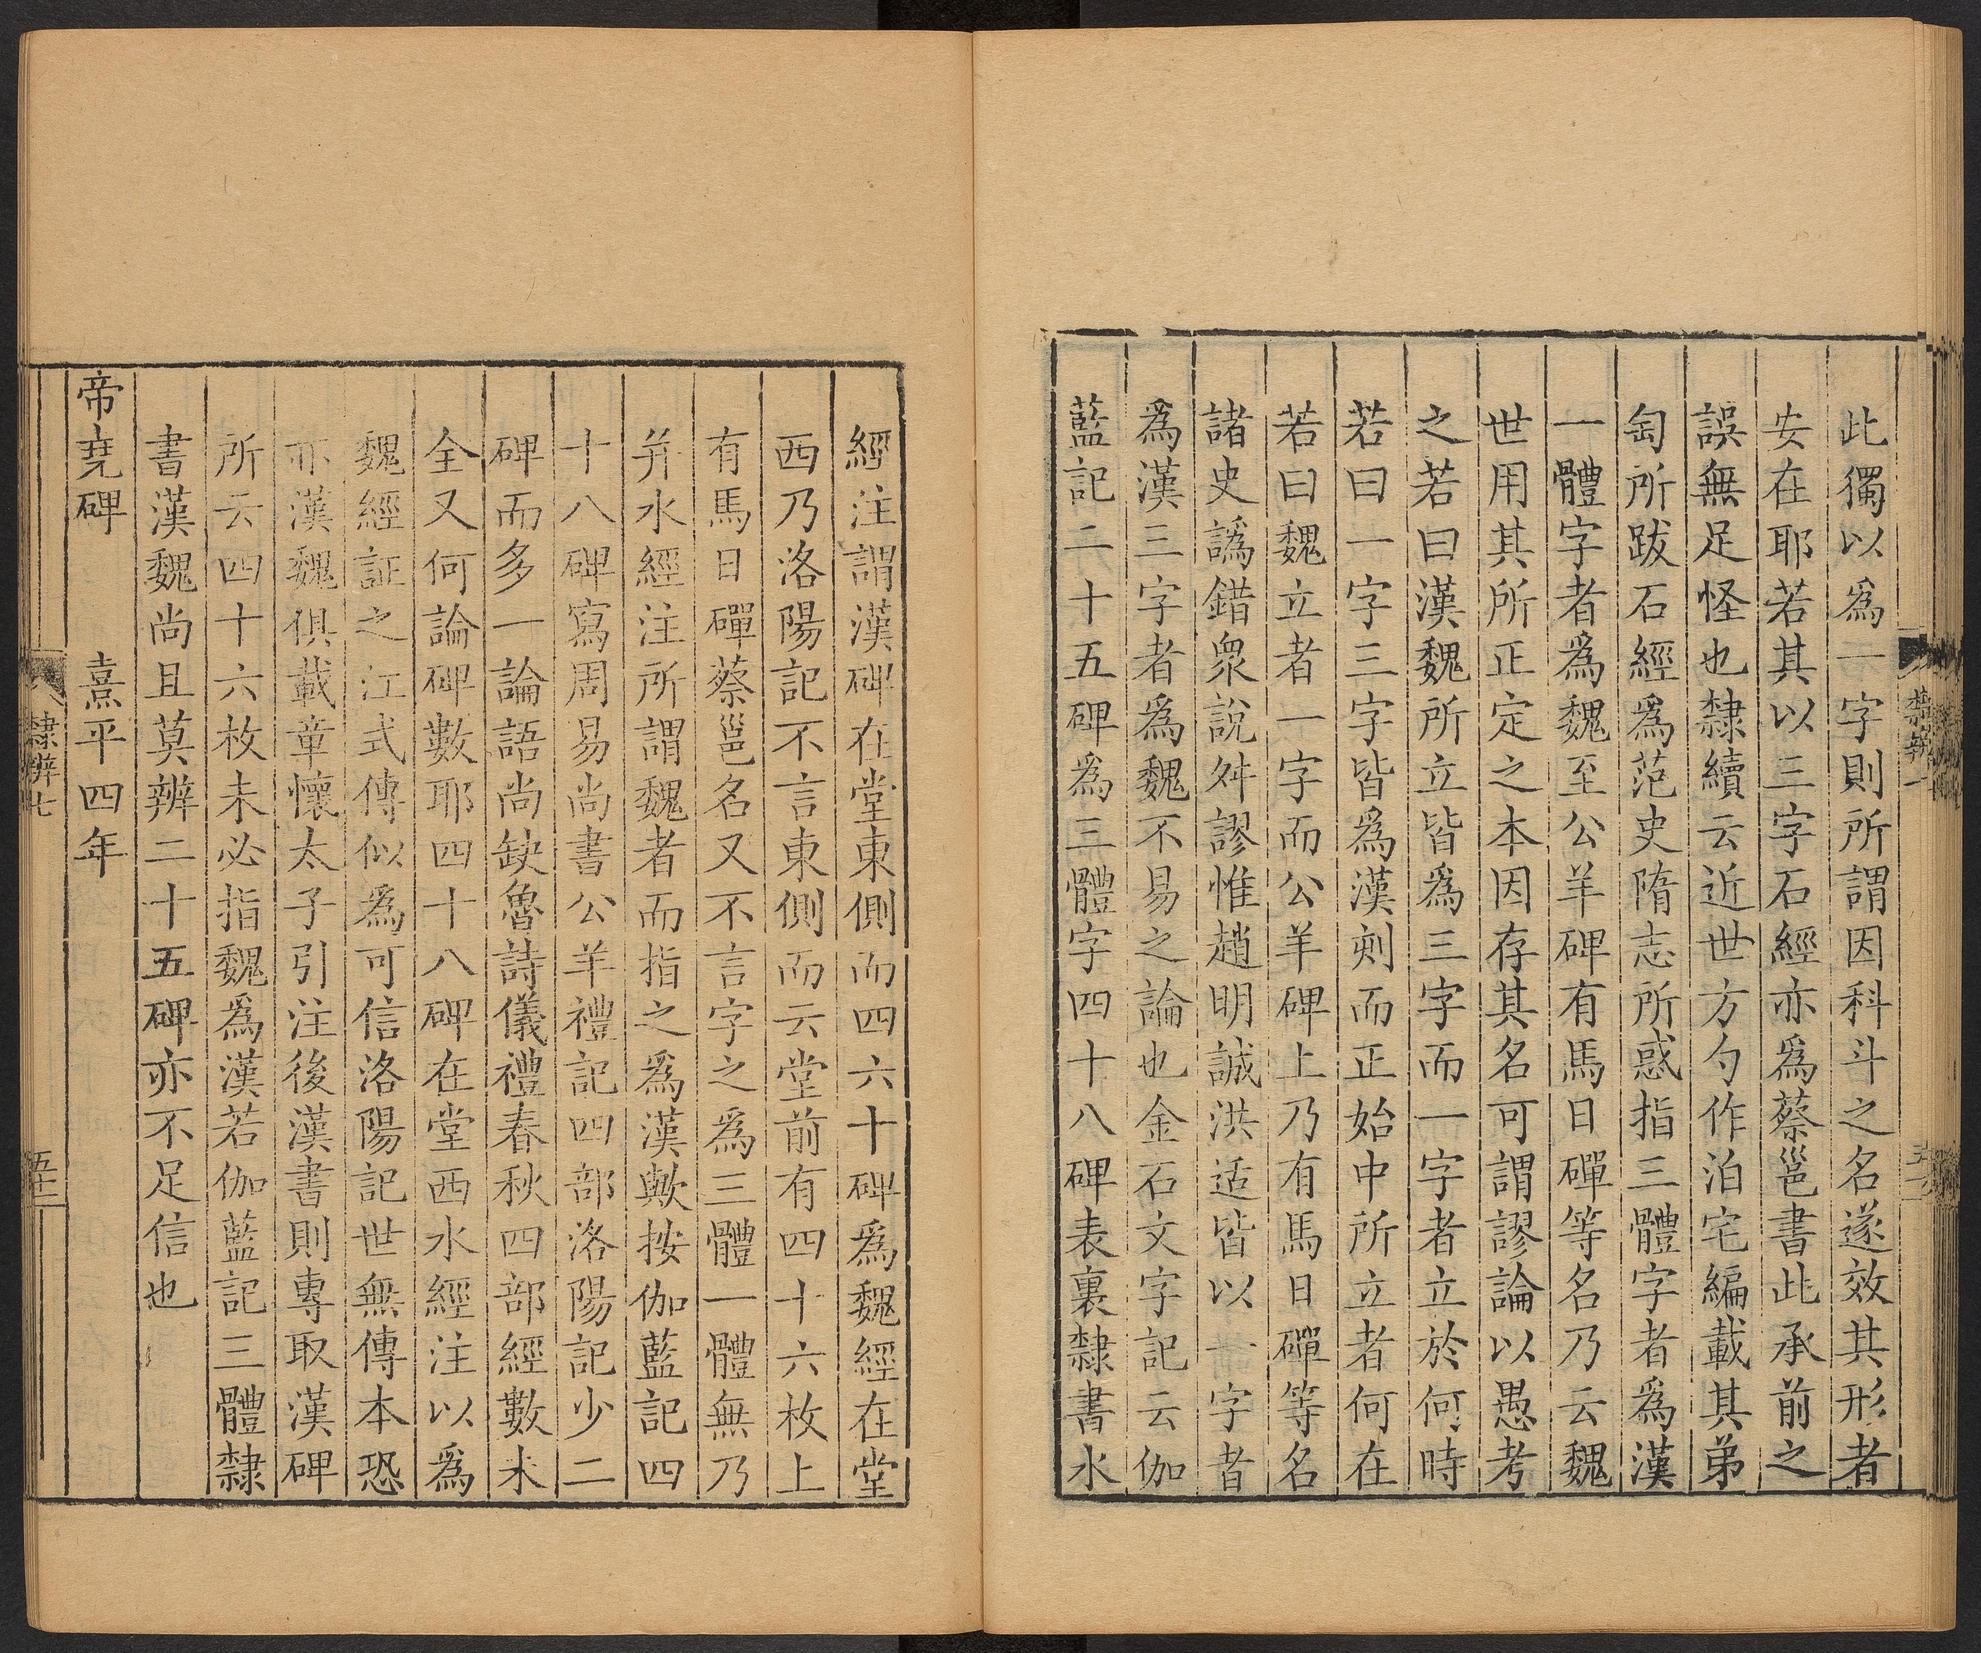 此獨以爲一字則所謂因科斗之名遂效其形者
安在耶若其以三字石經亦爲蔡邕書此承前之
誤無足怪也隸續云近世方勺作泊宅編載其弟
匋所跋石經爲范史隋志所惑指三體字者爲漢
一體字者爲魏至公羊碑有馬日磾等名乃云魏
世用其所正定之本因存其名可謂謬論以愚考
之若曰漢魏所立皆爲三字而一字者立於何時
若曰一字三字皆爲漢刻而正始中所立者何在
若曰魏立者一字而公羊碑上乃有馬日磾等名
諸史譌錯衆說舛謬惟趙明誠洪适皆以一字者
爲漢三字者爲魏不易之論也金石文字記云伽
藍記二十五碑爲三體字四十八碑表裏隸書水
經注謂漢碑在堂東側而四六十碑爲魏經在堂
西乃洛陽記不言東側而云堂前有四十六枚上
有馬日磾蔡邕名又不言字之爲三體一體無乃
并水經注所謂魏者而指之爲漢歟按伽藍記四
十八碑寫周易尚書公羊禮記四部洛陽記少二
碑而多一論語尚缺魯詩儀禮春秋四部經數未
全又何論碑數耶四十八碑在堂西水經注以爲
魏經証之江式傳似爲可信洛陽記世無傳本恐
亦漢魏俱載章懷太子引注後漢書則專取漢碑
所云四十六枚未必指魏爲漢若伽藍記三體隸
書漢魏尚且莫辨二十五碑亦不足信也
帝堯碑 熹平四年
隸辨七
五十二